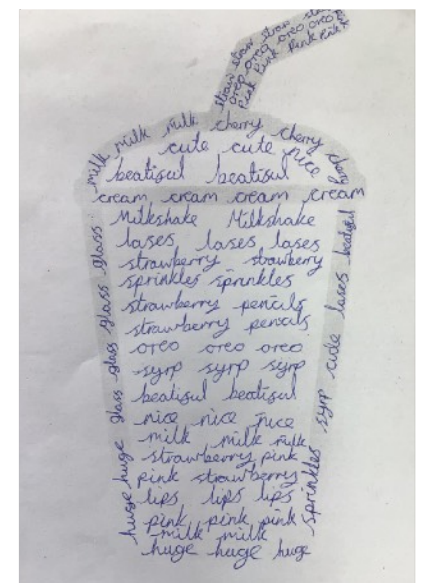 straw straw straw
oreo oreo oreo oreo
Pink Pink Pink Pink
milk milk milk cherry cherry cherry
cute cute nice
beatisul beatisul
cream cream cream cream
Milkshake Milkshake
lases lases lases
strawberry stawberry
sprinkles sprinkles
strawberry pencils
strawberry pencils
oreo oreo oreo
syrp syrp syrp
beatisul beatisul
nice nice nice
milk milk milk
strawberry pink
pink strawberry
lips lips lips
pink pink pink
milk milk
huge huge huge
huge huge glass glass glass glass
sprinkles syrp cute lases beatisul